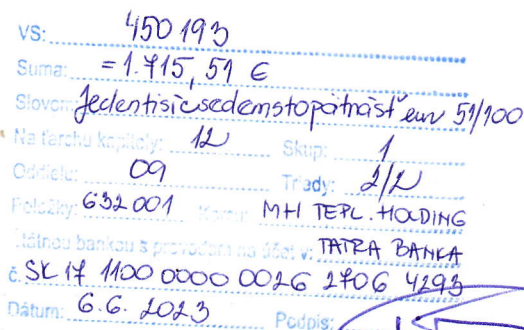 VS: 450193
Suma: =1.715, 51 €
Slovom: Jedentisícsedemstopätnásť eur 51/100
Na ťarchu kapitoly: 12 Skup: 1
Oddielu: 09 Triedy: 2/2
Položky: 632001 MH TEPL. HOLDING
Štátnou bankou s prevodom na účet v: TATRA BANKA
č. SK 17 1100 0000 0026 2706 4293
Dátum: 6.6. 2023 Podpis: